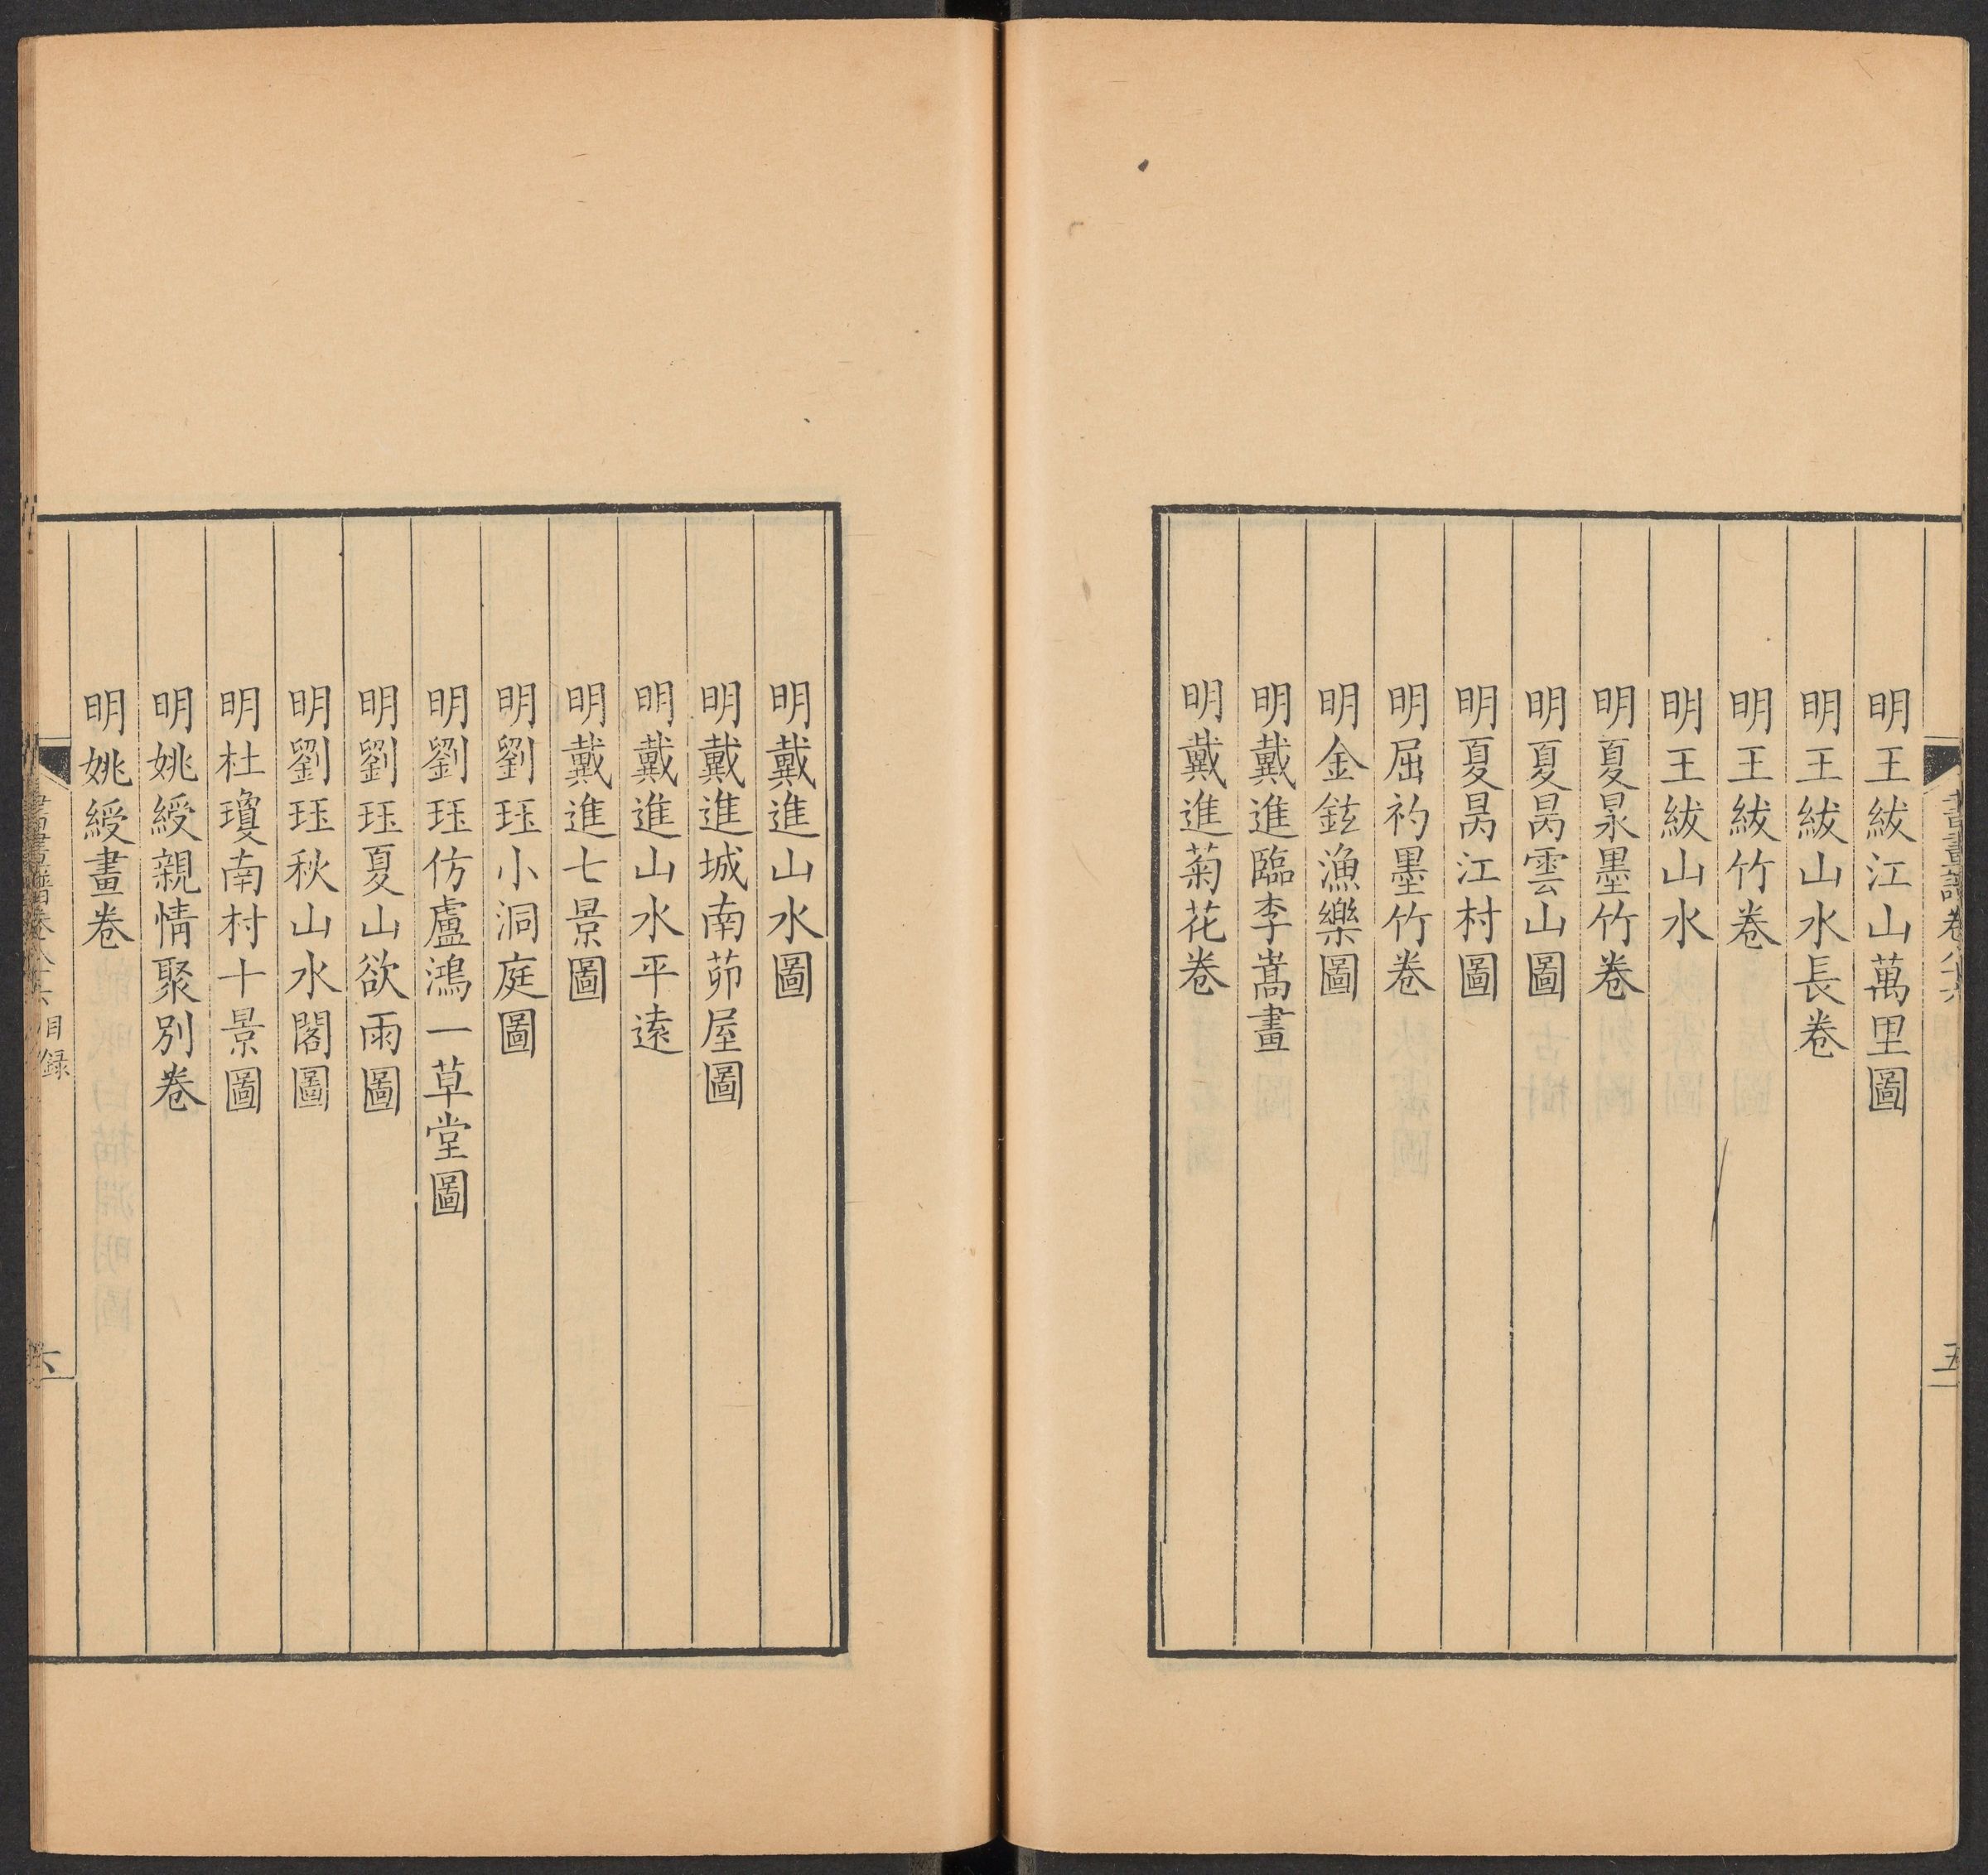 書畫譜卷八十六
五
明王紱江山萬里圖
明王紱山水長卷
明王紱竹卷
明王紱山水
明夏㫤墨竹卷
明夏昺雲山圖
明夏昺江村圖
明屈礿墨竹卷
明金鉉漁樂圖
明戴進臨李嵩畫
明戴進菊花卷
明戴進山水圖
明戴進城南茆屋圖
明戴進山水平遠
明戴進七景圖
明劉珏小洞庭圖
明劉珏仿盧鴻一草堂圖
明劉珏夏山欲雨圖
明劉珏秋山水閣圖
明杜瓊南村十景圖
明姚綬親情聚別卷
明姚綬畫卷
書畫譜卷八十六 目録
六